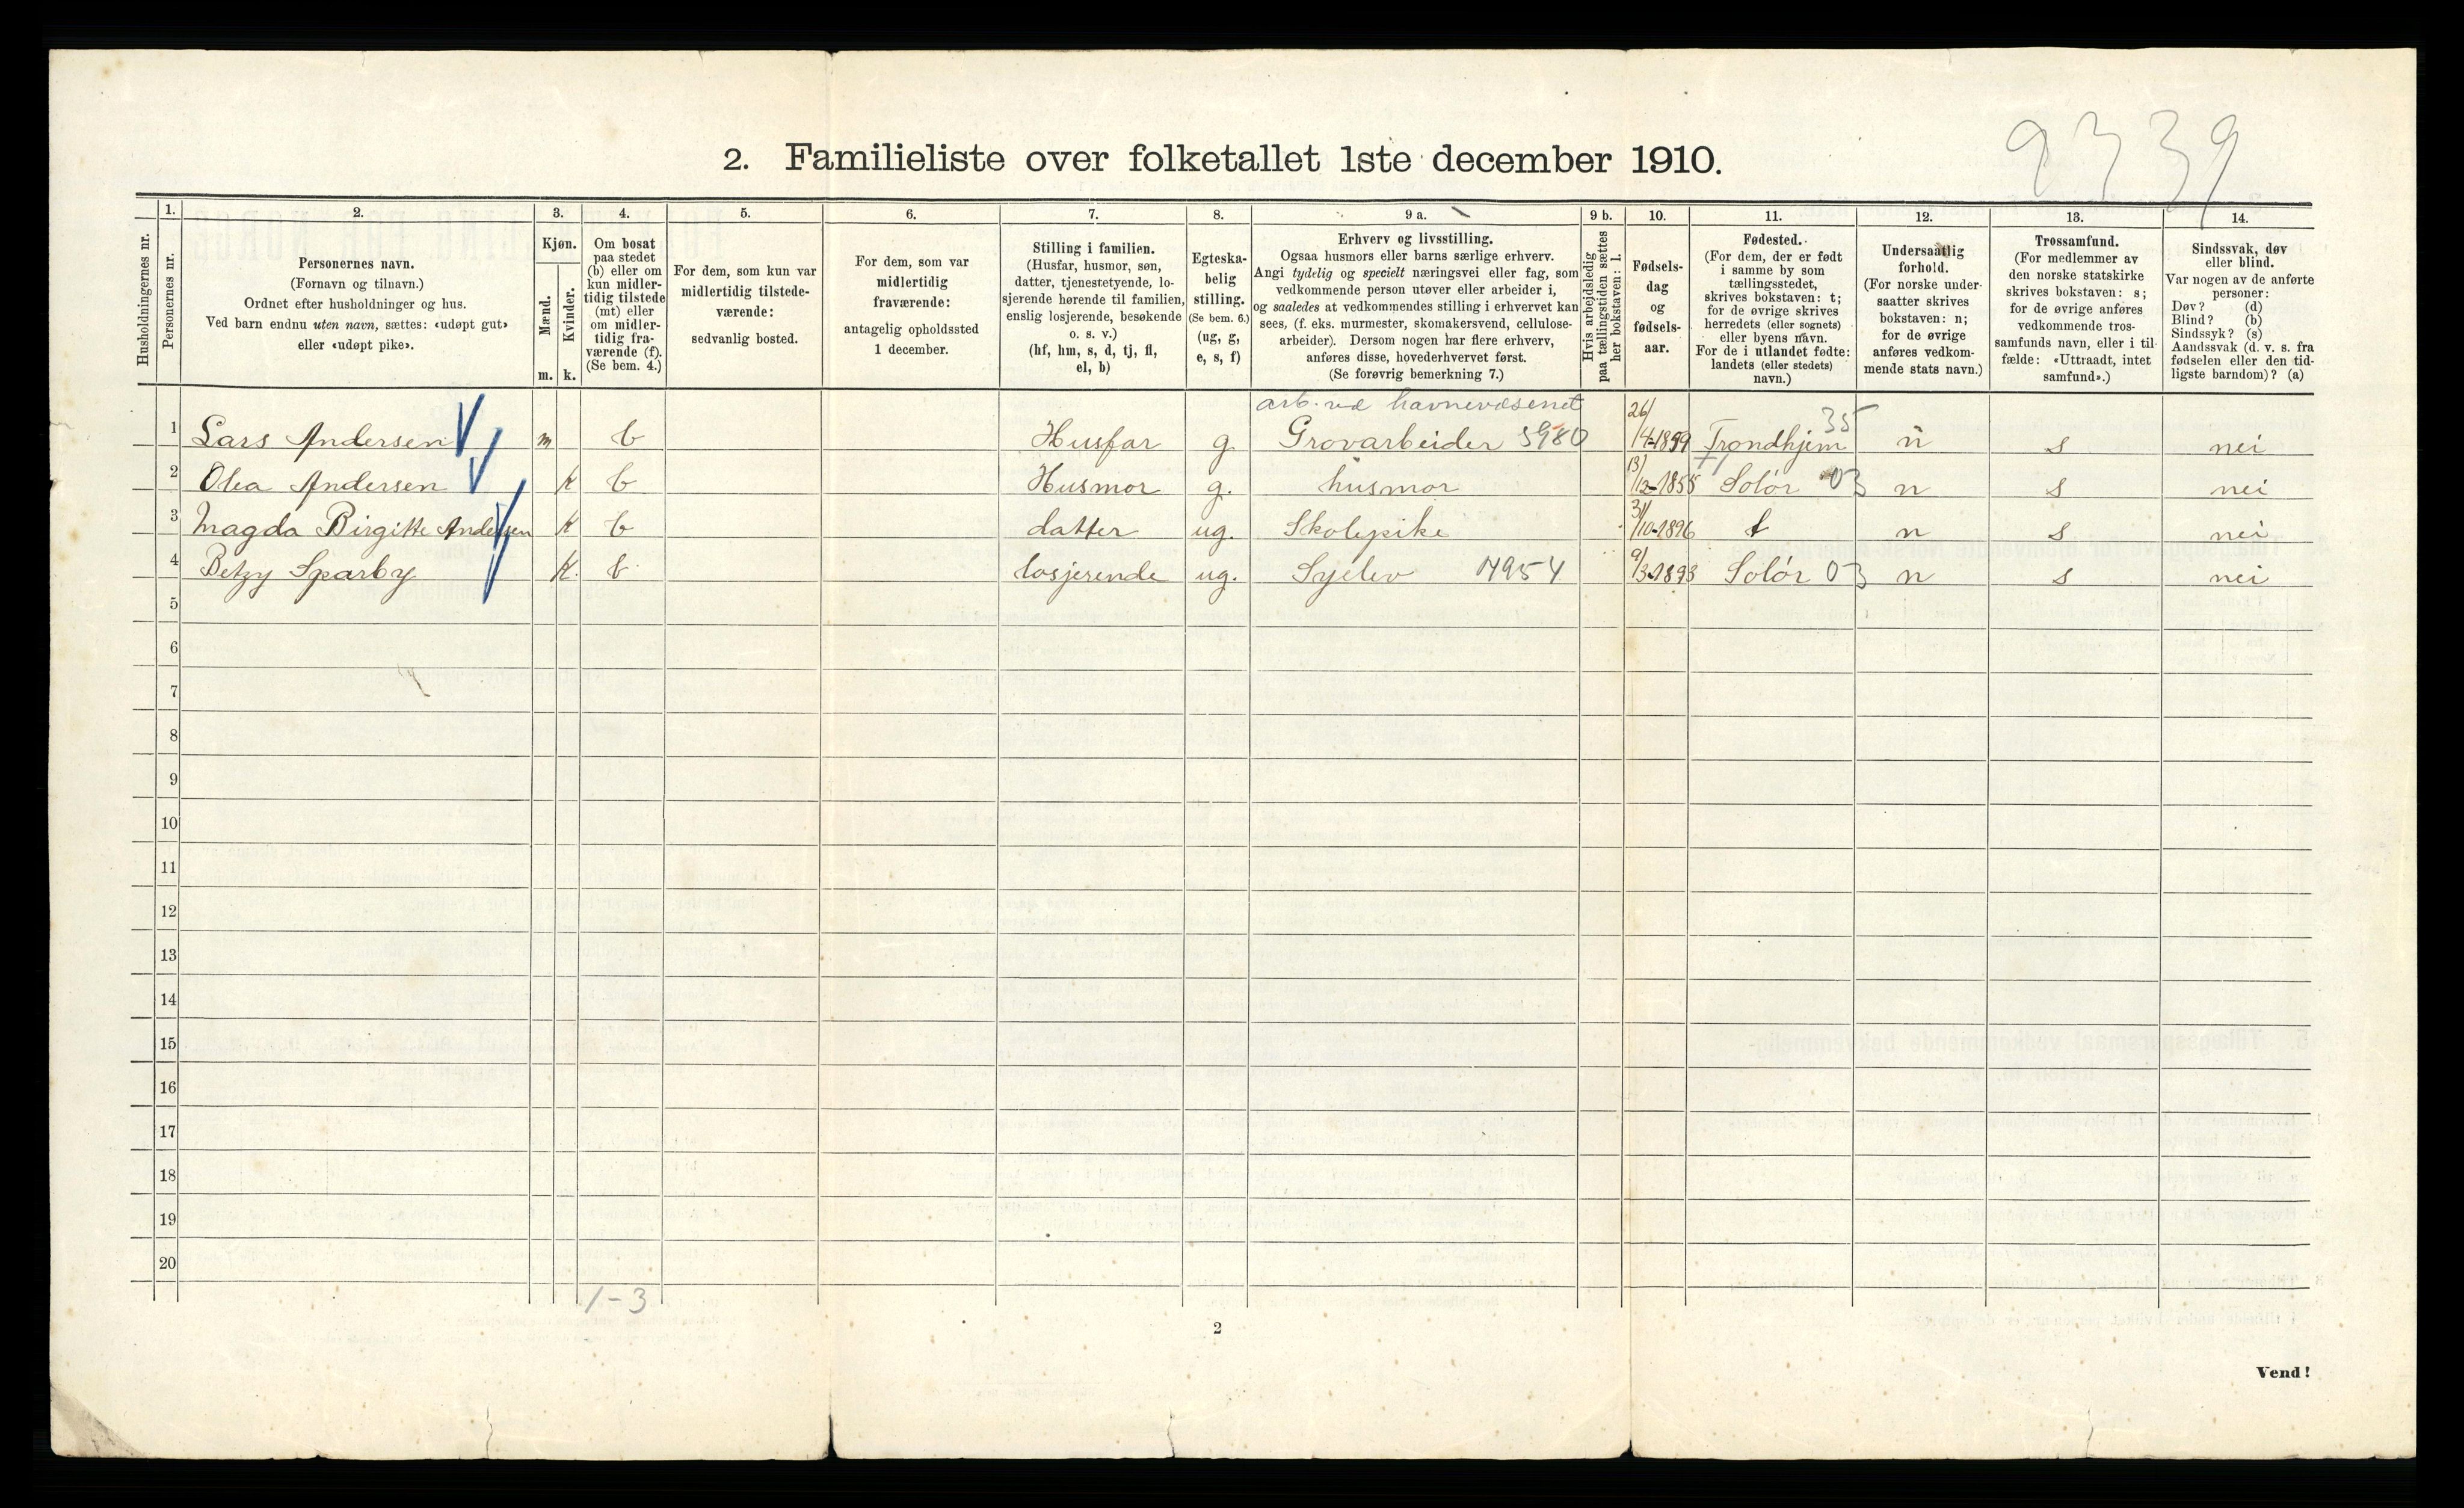 9339
2. Familieliste over folketallet 1ste december 1910.
Husholdningernes nr.
1.
Personernes nr.
2.
Personernes navn.
(Fornavn og tilnavn.)
Ordnet efter husholdninger og hus.
Ved barn endnu uten navn, sættes: «udøpt gut»
eller «udøpt pike».
3.
Kjøn.
Mænd.
Kvinder.
m. k.
4.
Om bosat
paa stedet
(b) eller om
kun midler-
tidig tilstede
(mt) eller
om midler-
tidig fra-
værende (f).
(Se bem. 4.)
5.
For dem, som kun var
midlertidig tilstede-
værende:
sedvanlig bosted.
6.
For dem, som var
midlertidig
fraværende:
antagelig opholdssted
1 december.
7.
Stilling i familien.
(Husfar, husmor, søn,
datter, tjenestetyende, lo-
sjerende hørende til familien,
enslig losjerende, besøkende
o. s. v.)
(hf, hm, s, d, tj, fl,
el, b)
8.
Egteska-
belig
stilling.
(Se bem. 6.)
(ug, g,
e, s, f)
9 a.
Erhverv og livsstilling.
Ogsaa husmors eller barns særlige erhverv.
Angi tydelig og specielt næringsvei eller fag, som
vedkommende person utøver eller arbeider i,
og saaledes at vedkommendes stilling i erhvervet kan
sees, (f. eks. murmester, skomakersvend, cellulose-
arbeider). Dersom nogen har flere erhverv,
anføres disse, hovederhvervet først.
(Se forøvrig bemerkning 7.)
9 b.
Hvis arbeidsledig
paa tællingstiden sættes
her bokstaven: l.
10.
Fødsels-
dag
og
fødsels-
aar.
11.
Fødested.
(For dem, der er født
i samme by som
tællingsstedet,
skrives bokstaven: t;
for de øvrige skrives
herredets (eller sognets)
eller byens navn.
For de i utlandet fødte:
landets (eller stedets)
navn.)
12.
Undersaatlig
forhold.
(For norske under-
saatter skrives
bokstaven: n;
for de øvrige
anføres vedkom-
mende stats navn.)
13.
Trossamfund.
(For medlemmer av
den norske statskirke
skrives bokstaven: s;
for de øvrige anføres
vedkommende tros-
samfunds navn, eller i til-
fælde: «Uttraadt, intet
samfund».)
14.
Sindssvak, døv
eller blind.
Var nogen av de anførte
personer:
Døv? (d)
Blind? (b)
Sindssyk? (s)
Aandssvak (d. v. s. fra
fødselen eller den tid-
ligste barndom)? (a)
arb. ved havnevæsenet
1 Lars Andersen m b Husfar g Grovarbeider 26/4-1859 Trondhjem 35 n s nei
2 Olea Andersen k b Husmor g. husmor 13/12-1855 Solør 03 n s nei
3 Magda Birgitte Andersen k b datter ug. Skolepike 31/10-1896 t n s nei
4 Betzy Sparby k. b losjerende ug. Syelev 9/3-1893 Solør 03 n s nei
5
6
7
8
9
10
11
12
13
14
15
16
17
18
19
20
1-3
2
Vend!